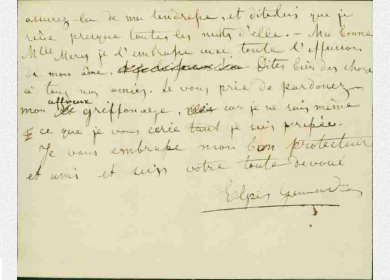 assurez-la de ma tendresse, et dites lui que je
rève presque toutes les nuits d'elle. – Ma bonne
Mlle je l'embrasse avec toute l'effusion
de mon âme. Dites bien des choses
à tous nos amies. Je vous prie de pardonez
mon affreux griffonage, car je ne sais même
ce que je vous écrie tant je suis pressée.
Je vous embrasse mon bon protecteur
et ami et suis votre toute devoué
Elpis